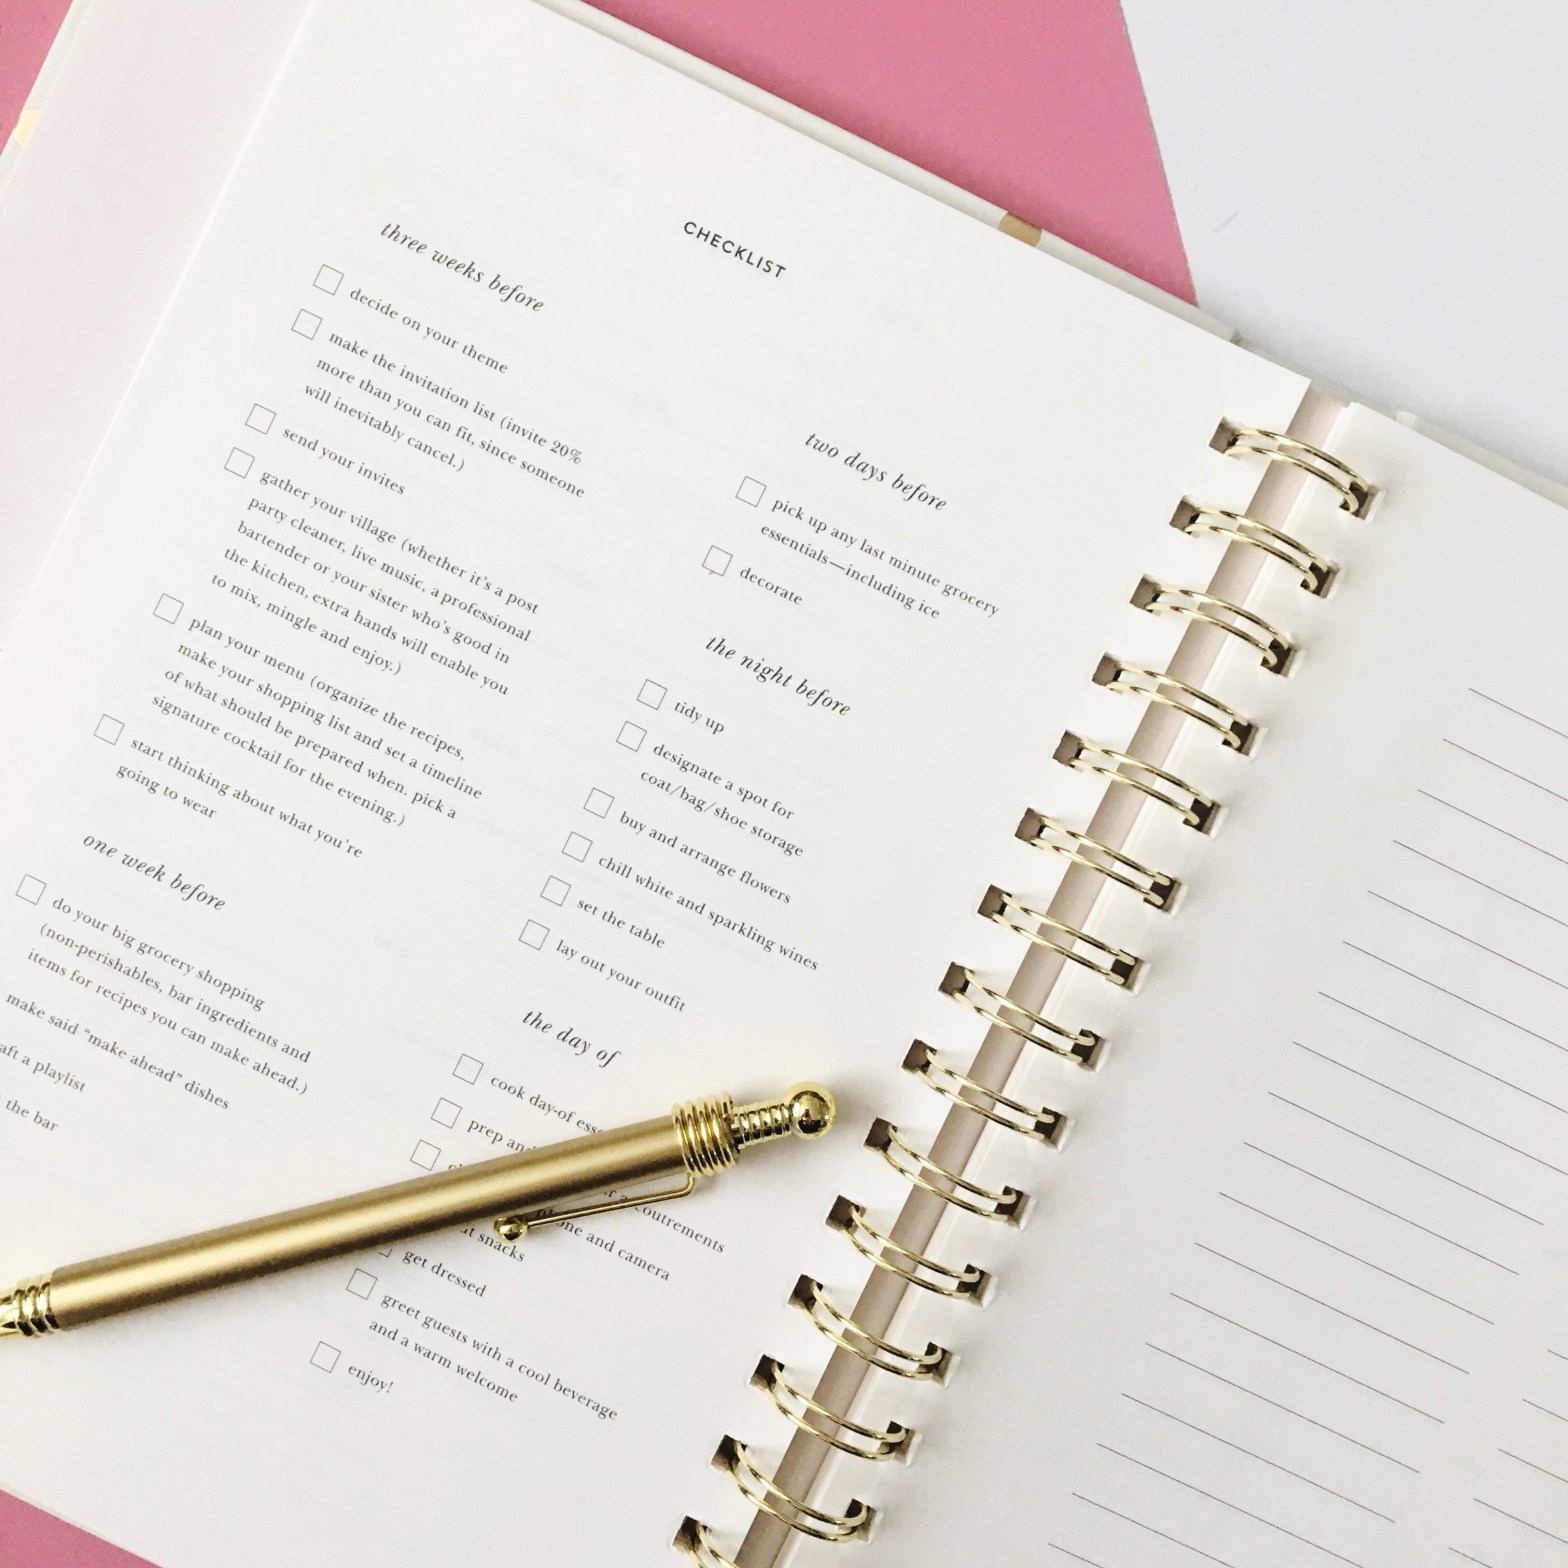 CHECKLIST
three weeks before
decide on your theme
make the invitation list (invite 20%
more than you can fit, since someone
will inevitably cancel.)
send your invites
gather your village (whether it's a post
party cleaner, live music, a professional
bartender or your sister who's good in
the kitchen, extra hands will enable you
to mix, mingle and enjoy.)
plan your menu (organize the recipes,
make your shopping list and set a timeline
of what should be prepared when. pick a
signature cocktail for the evening.)
start thinking about what you're
going to wear
one week before
do your big grocery shopping
(non-perishables, bar ingredients and
items for recipes you can make ahead.)
make said "make ahead" dishes
a playlist
the bar
two days before
pick up any last minute grocery
essentials—including ice
decorate
the night before
tidy up
designate a spot for
coat/bag/shoe storage
buy and arrange flowers
chill white and sparkling wines
set the table
lay out your outfit
the day of
cook day-of
prep
and camera
snacks
get dressed
greet guests with a cool beverage
and a warm welcome
enjoy!